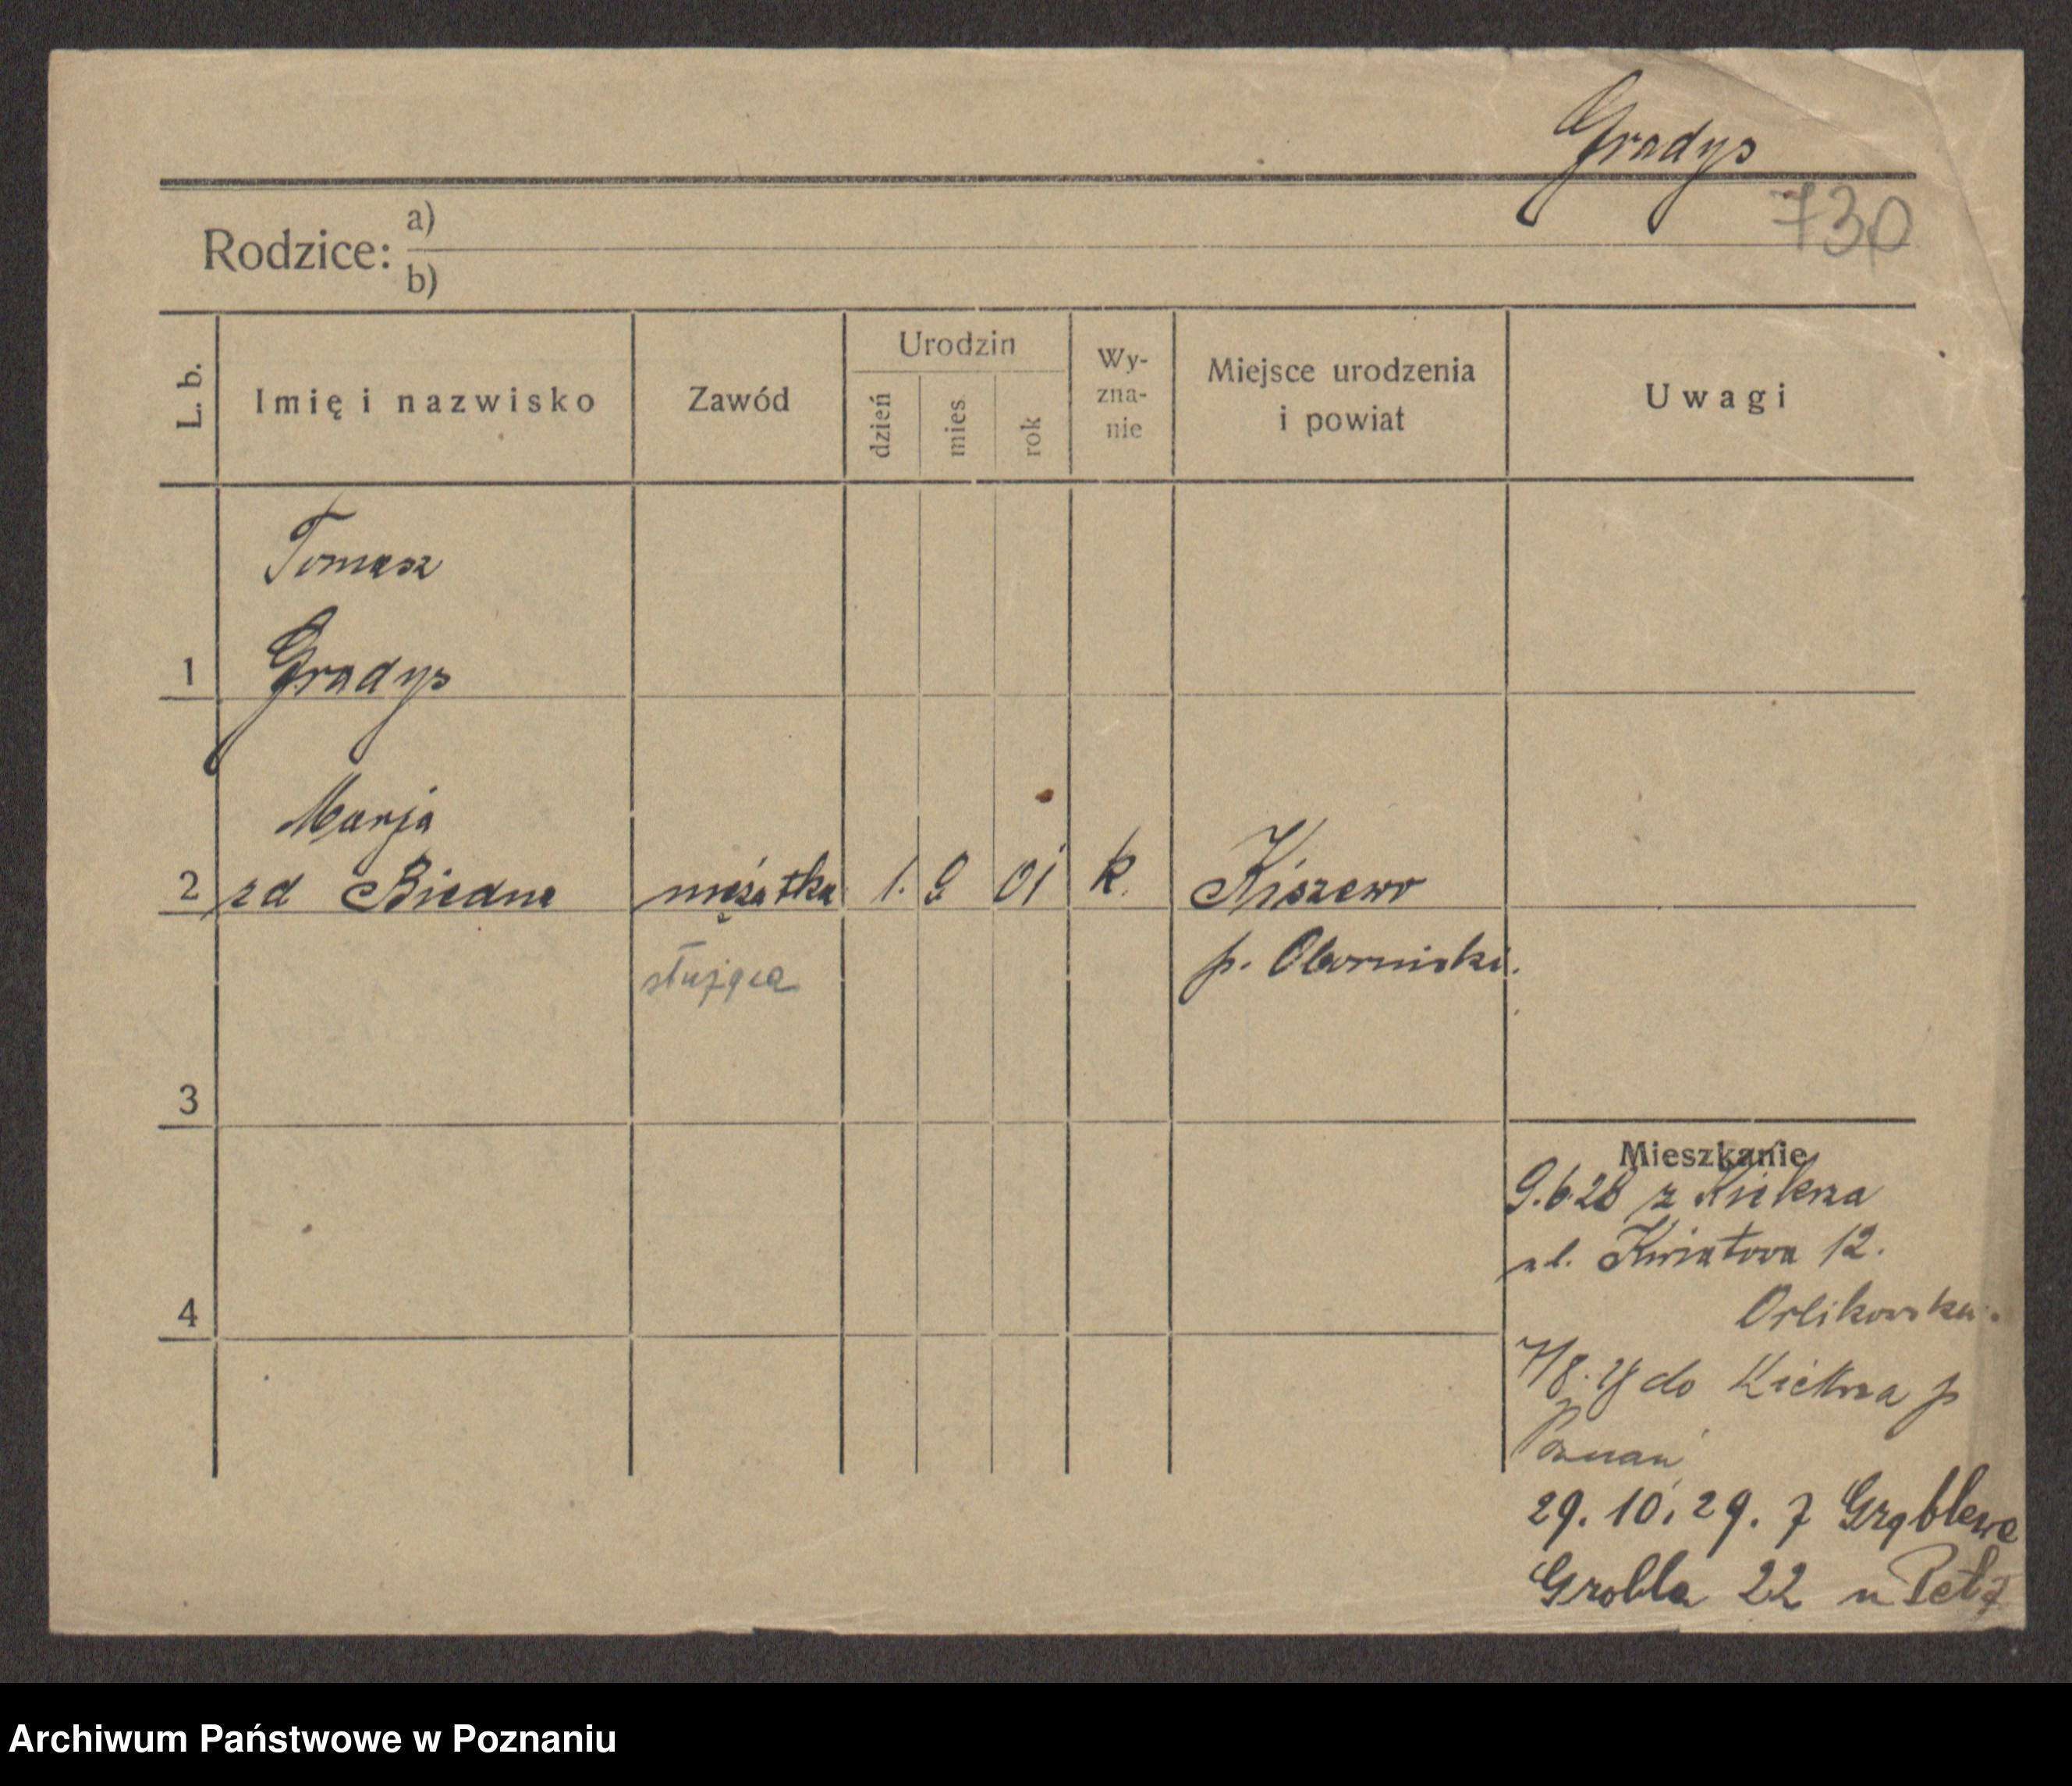 Gradys
730
Rodzice:
a)
b)
L. b.
Imię i nazwisko
Zawód
Urodzin
dzień
mies.
rok
Wy-
zna-
nie
Miejsce urodzenia
i powiat
Uwagi
Tomasz
1 Gradys
Marja
2 zd Biedna mężatka 1. 9 01 k. Kiszewo
służąca p. Oborniski.
3
Mieszkanie
9.6.28 z Kiekrza
ul. Kwiatowa 12.
Orlikowska.
4
do Kiekrza p
Poznań
29. 10. 29. z Grąblewa
Grobla 22 u
Archiwum Państwowe w Poznaniu